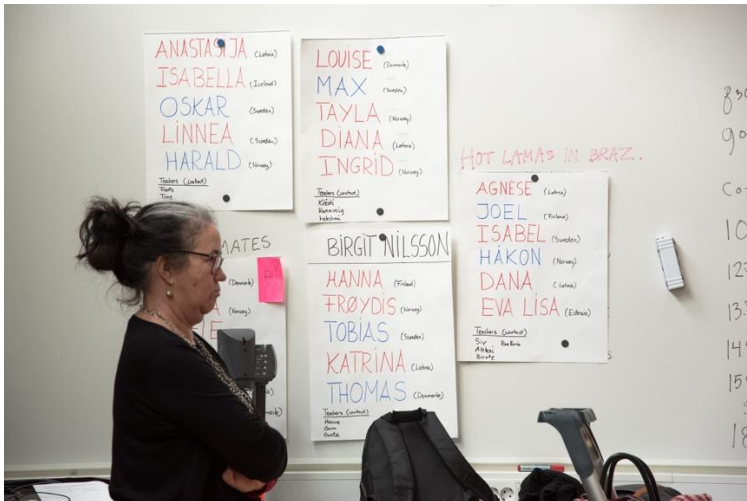 ANASTASIJA (Latvia)
ISABELLA (Iceland)
OSKAR (Sweden)
LINNEA (Sweden)
HARALD (Norway)
Teachers (contact)
Timo
LOUISE (Denmark)
MAX (Sweden)
TAYLA (Norway)
DIANA (Latvia)
INGRID (Norway)
Teachers (contact)
Rannveig
HOT LAMAS IN BRAZ.
AGNESE (Latvia)
JOEL (Finland)
ISABEL (Sweden)
HÅKON (Norway)
DANA (Latvia)
EVA LISA (Estonia)
Teachers (contact)
Siv
Aleksi
Birute
MATES
(Denmark)
(Norway)
BIRGIT NILSSON
HANNA (Finland)
FRØYDIS (Norway)
TOBIAS (Sweden)
KATRINA (Latvia)
THOMAS (Denmark)
Teachers (contact)
Gunta
830
90
Co
10
12
13.
14
15
18